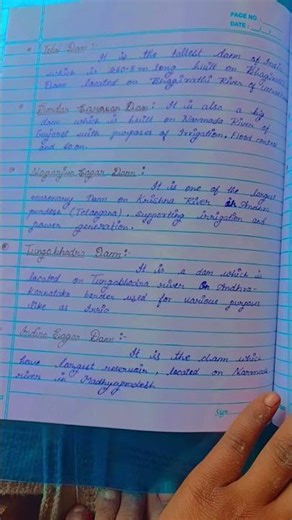 PAGE NO.:
DATE: / /
Tehri Dam:
It is the tallest dam of India
which is 260.5 m long built on Bhagirathi
Dam located on Bhagirathi River of
Sardar Sarovar Dam: It is also a big
dam which is built on Narmada River of
Gujarat with purposes of Irrigation, Flood control
and so on.
Nagarjun Sagar Dam:
It is one of the largest
masonary Dam on Krishna River in Andhra
pradesh (Telangana), supporting irrigation and
power generation.
Tungabhadra Dam:-
It is a dam which is
located on Tungabhadra river on Andhra-
Karnataka border used for various purposes
like as
Indira Sagar Dam:-
It is the dam which
have largest reservoir, located on Narmada
river in Madhyapradesh.
Sign